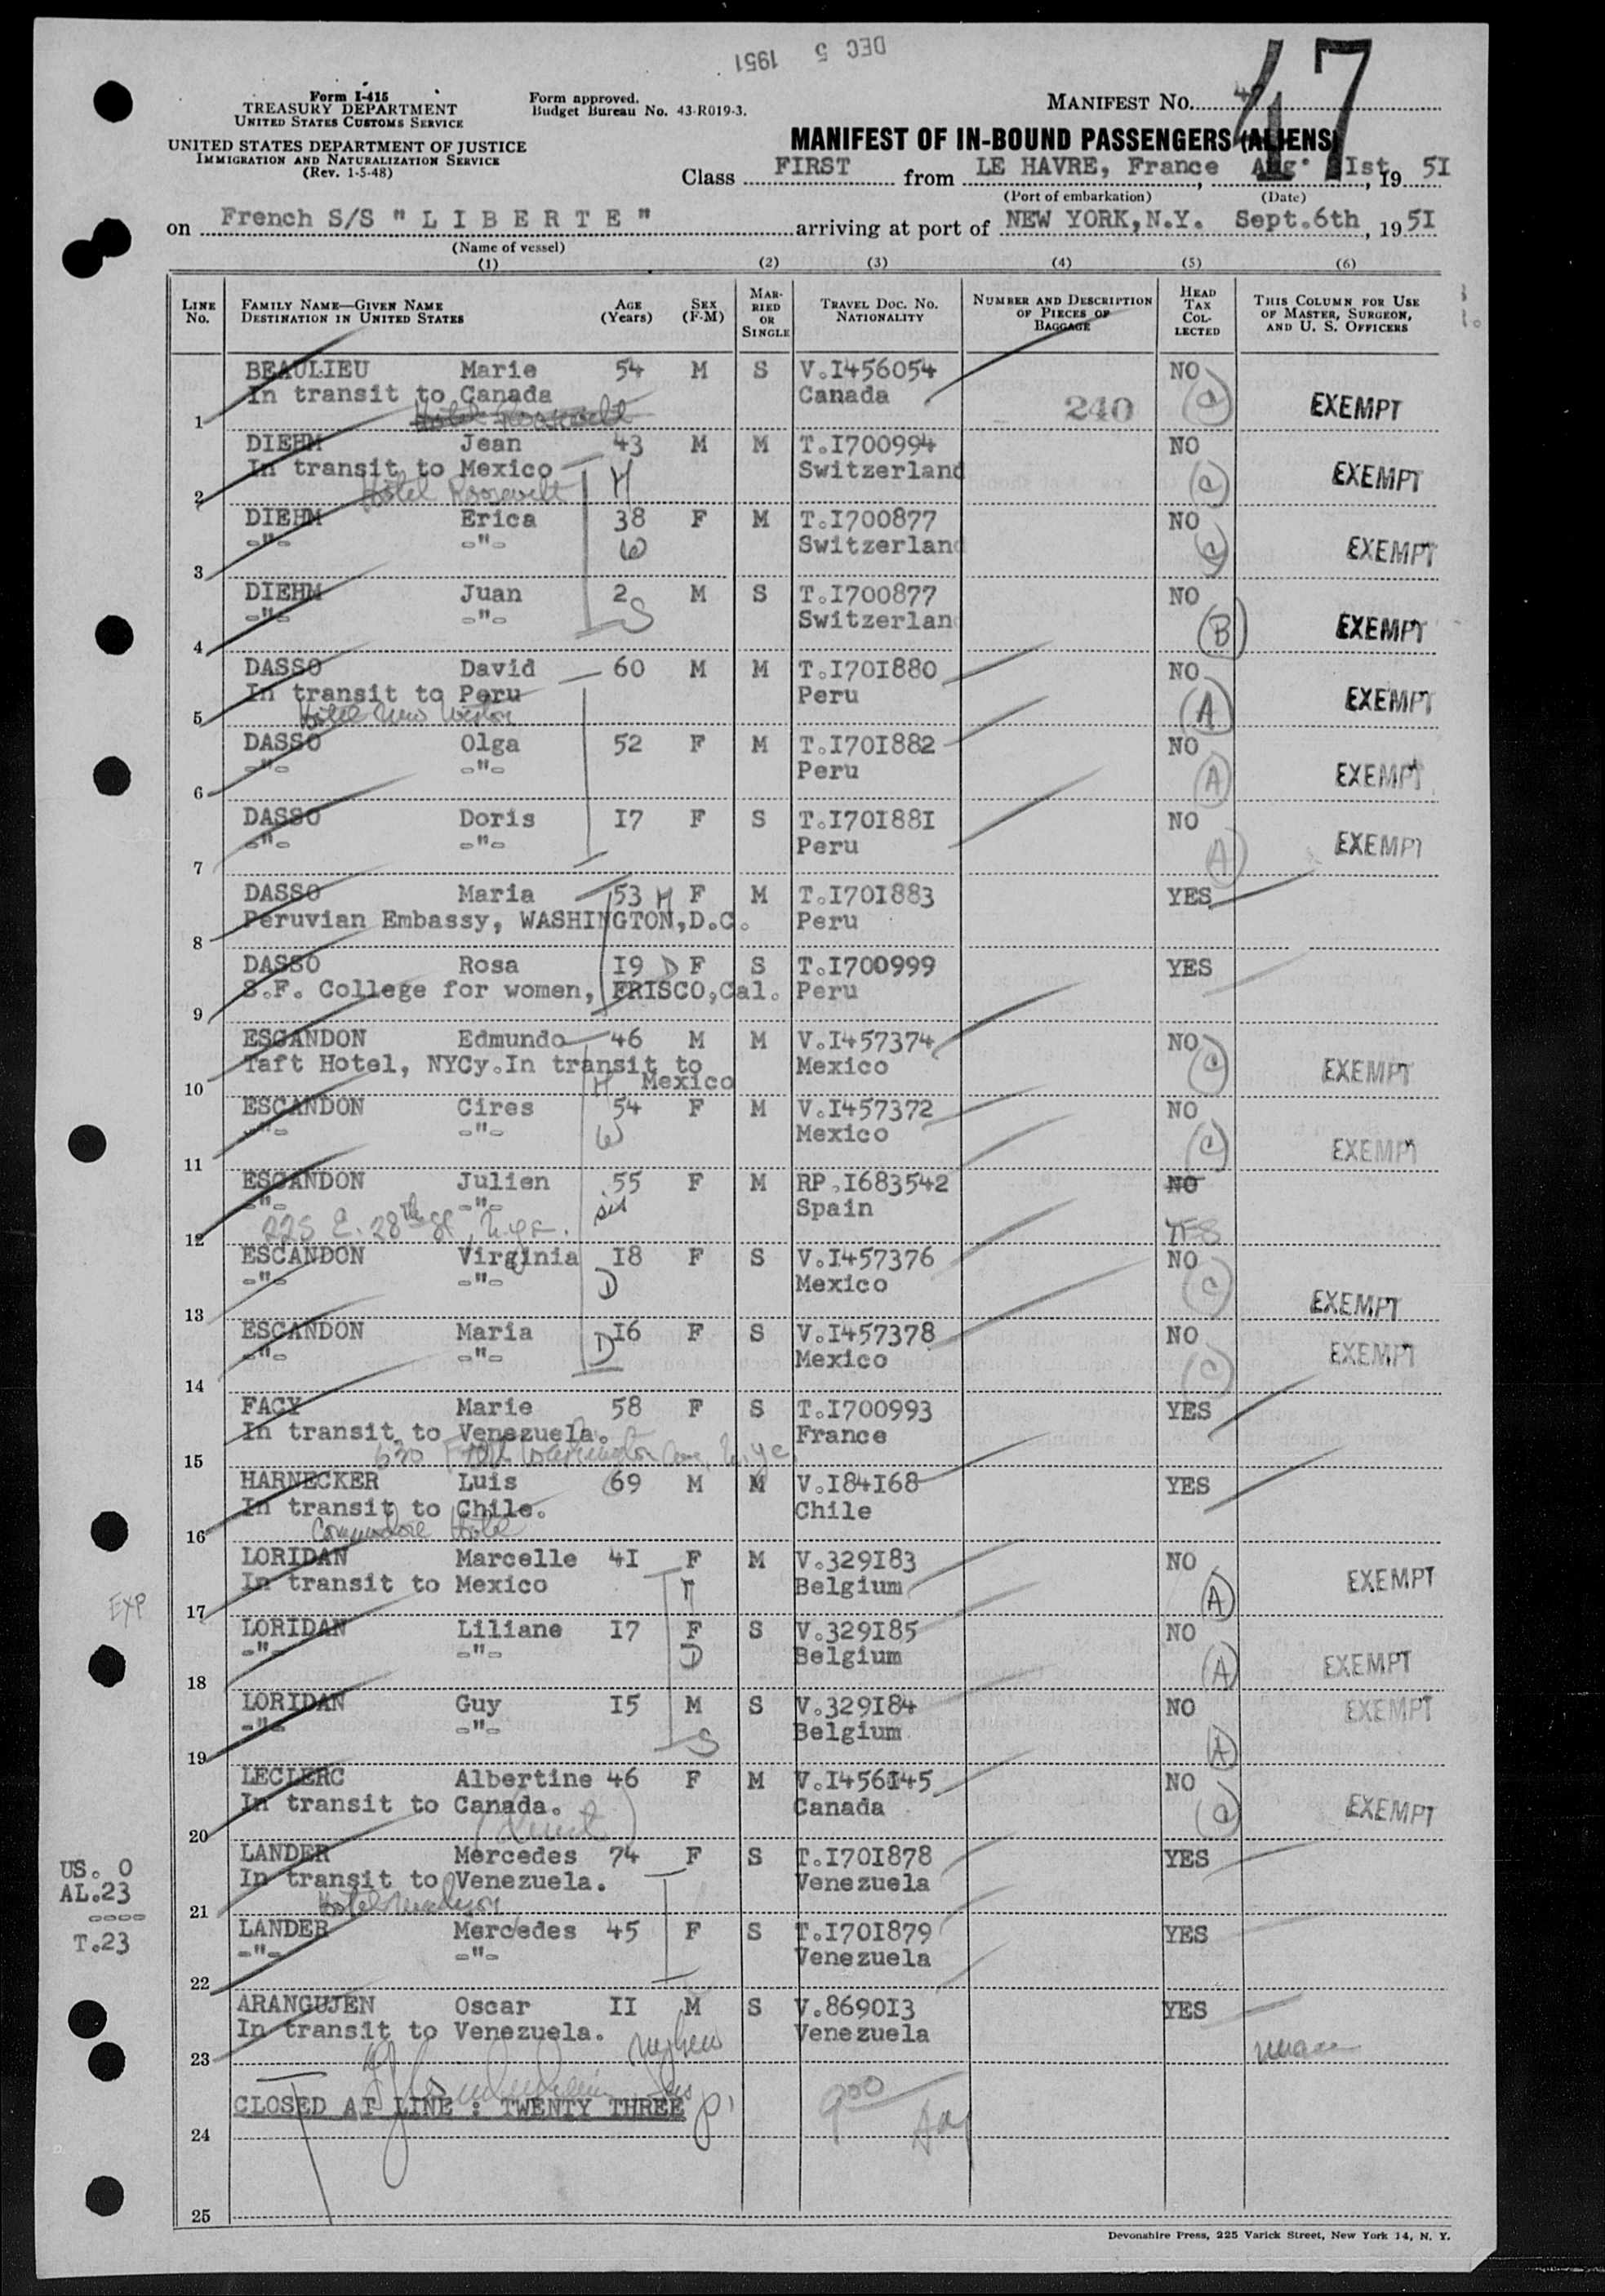 DEC 5 1951
47
Form I-415
TREASURY DEPARTMENT
UNITED STATES CUSTOMS SERVICE
UNITED STATES DEPARTMENT OF JUSTICE
IMMIGRATION AND NATURALIZATION SERVICE
(Rev. 1-5-48)
Form approved.
Budget Bureau No. 43-R019-3.
MANIFEST NO.
MANIFEST OF IN-BOUND PASSENGERS (ALIENS)
Class FIRST from LE HAVRE, France, Aug. 31st, 19 51
(Port of embarkation) (Date)
on French S/S " L I B E R T E " arriving at port of NEW YORK,N.Y. Sept.6th, 19 51
(Name of vessel)
(1) (2) (3) (4) (5) (6)
LINE NO. FAMILY NAME—GIVEN NAME DESTINATION IN UNITED STATES AGE (YEARS) SEX (F-M) MARRIED OR SINGLE TRAVEL DOC. NO. NATIONALITY NUMBER AND DESCRIPTION OF PIECES OF BAGGAGE HEAD TAX COLLECTED THIS COLUMN FOR USE OF MASTER, SURGEON, AND U. S. OFFICERS
BEAULIEU Marie 54 M S V.I456054 NO
In transit to Canada Canada 240 C EXEMPT
1 Hotel Roosevelt
DIEHM Jean 43 M M T.I700994 NO
In transit to Mexico H Switzerland C EXEMPT
2 Hotel Roosevelt
DIEHM Erica 38 F M T.I700877 NO
-"- -"- W Switzerland C EXEMPT
3
DIEHM Juan 2 M S T.I700877 NO
-"- -"- S Switzerlan B EXEMPT
4
DASSO David 60 M M T.I70I880 NO
In transit to Peru Peru A EXEMPT
5 Hotel New Weston
DASSO Olga 52 F M T.I70I882 NO
-"- -"- Peru A EXEMPT
6
DASSO Doris I7 F S T.I70I88I NO
-"- -"- Peru A EXEMPT
7
DASSO Maria 53 M F M T.I70I883 YES
Peruvian Embassy, WASHINGTON,D.C. Peru
8
DASSO Rosa I9 D F S T.I700999 YES
S.F. College for women, FRISCO,Cal. Peru
9
ESCANDON Edmundo 46 M M V.I457374 NO
Taft Hotel, NYCy.In transit to Mexico C EXEMPT
10 H Mexico
ESCANDON Cires 54 F M V.I457372 NO
-"- -"- W Mexico C EXEMPT
11
ESCANDON Julien 55 F M RP.I683542 NO
-"- -"- sis Spain
12 225 E. 28th St, N.Y.C. YES
ESCANDON Virginia I8 F S V.I457376 NO
-"- -"- D Mexico C EXEMPT
13
ESCANDON Maria I6 F S V.I457378 NO
-"- -"- D Mexico C EXEMPT
14
FACY Marie 58 F S T.I700993 YES
In transit to Venezuela. France
15 630 Fort Washington Ave, N.Y.C.
HARNECKER Luis 69 M M V.I84I68 YES
In transit to Chile. Chile
16 Commodore Hotel
LORIDAN Marcelle 4I F M V.329I83 NO
In transit to Mexico M Belgium A EXEMPT
17
LORIDAN Liliane I7 F S V.329I85 NO
-"- -"- D Belgium A EXEMPT
18
LORIDAN Guy I5 M S V.329I84 NO EXEMPT
-"- -"- S Belgium A
19
LECLERC Albertine 46 F M V.I456I45 NO
In transit to Canada. Canada C EXEMPT
20
LANDER Mercedes 74 F S T.I70I878 YES
In transit to Venezuela. Venezuela
21 Hotel Madison
LANDER Mercedes 45 F S T.I70I879 YES
-"- -"- Venezuela
22
ARANGUJEN Oscar II M S V.8690I3 YES
In transit to Venezuela. Venezuela
23 nephew
CLOSED AT LINE : TWENTY THREE 900
24
25
EXP
US. 0
AL.23
----
T.23
Devonshire Press, 225 Varick Street, New York 14, N. Y.